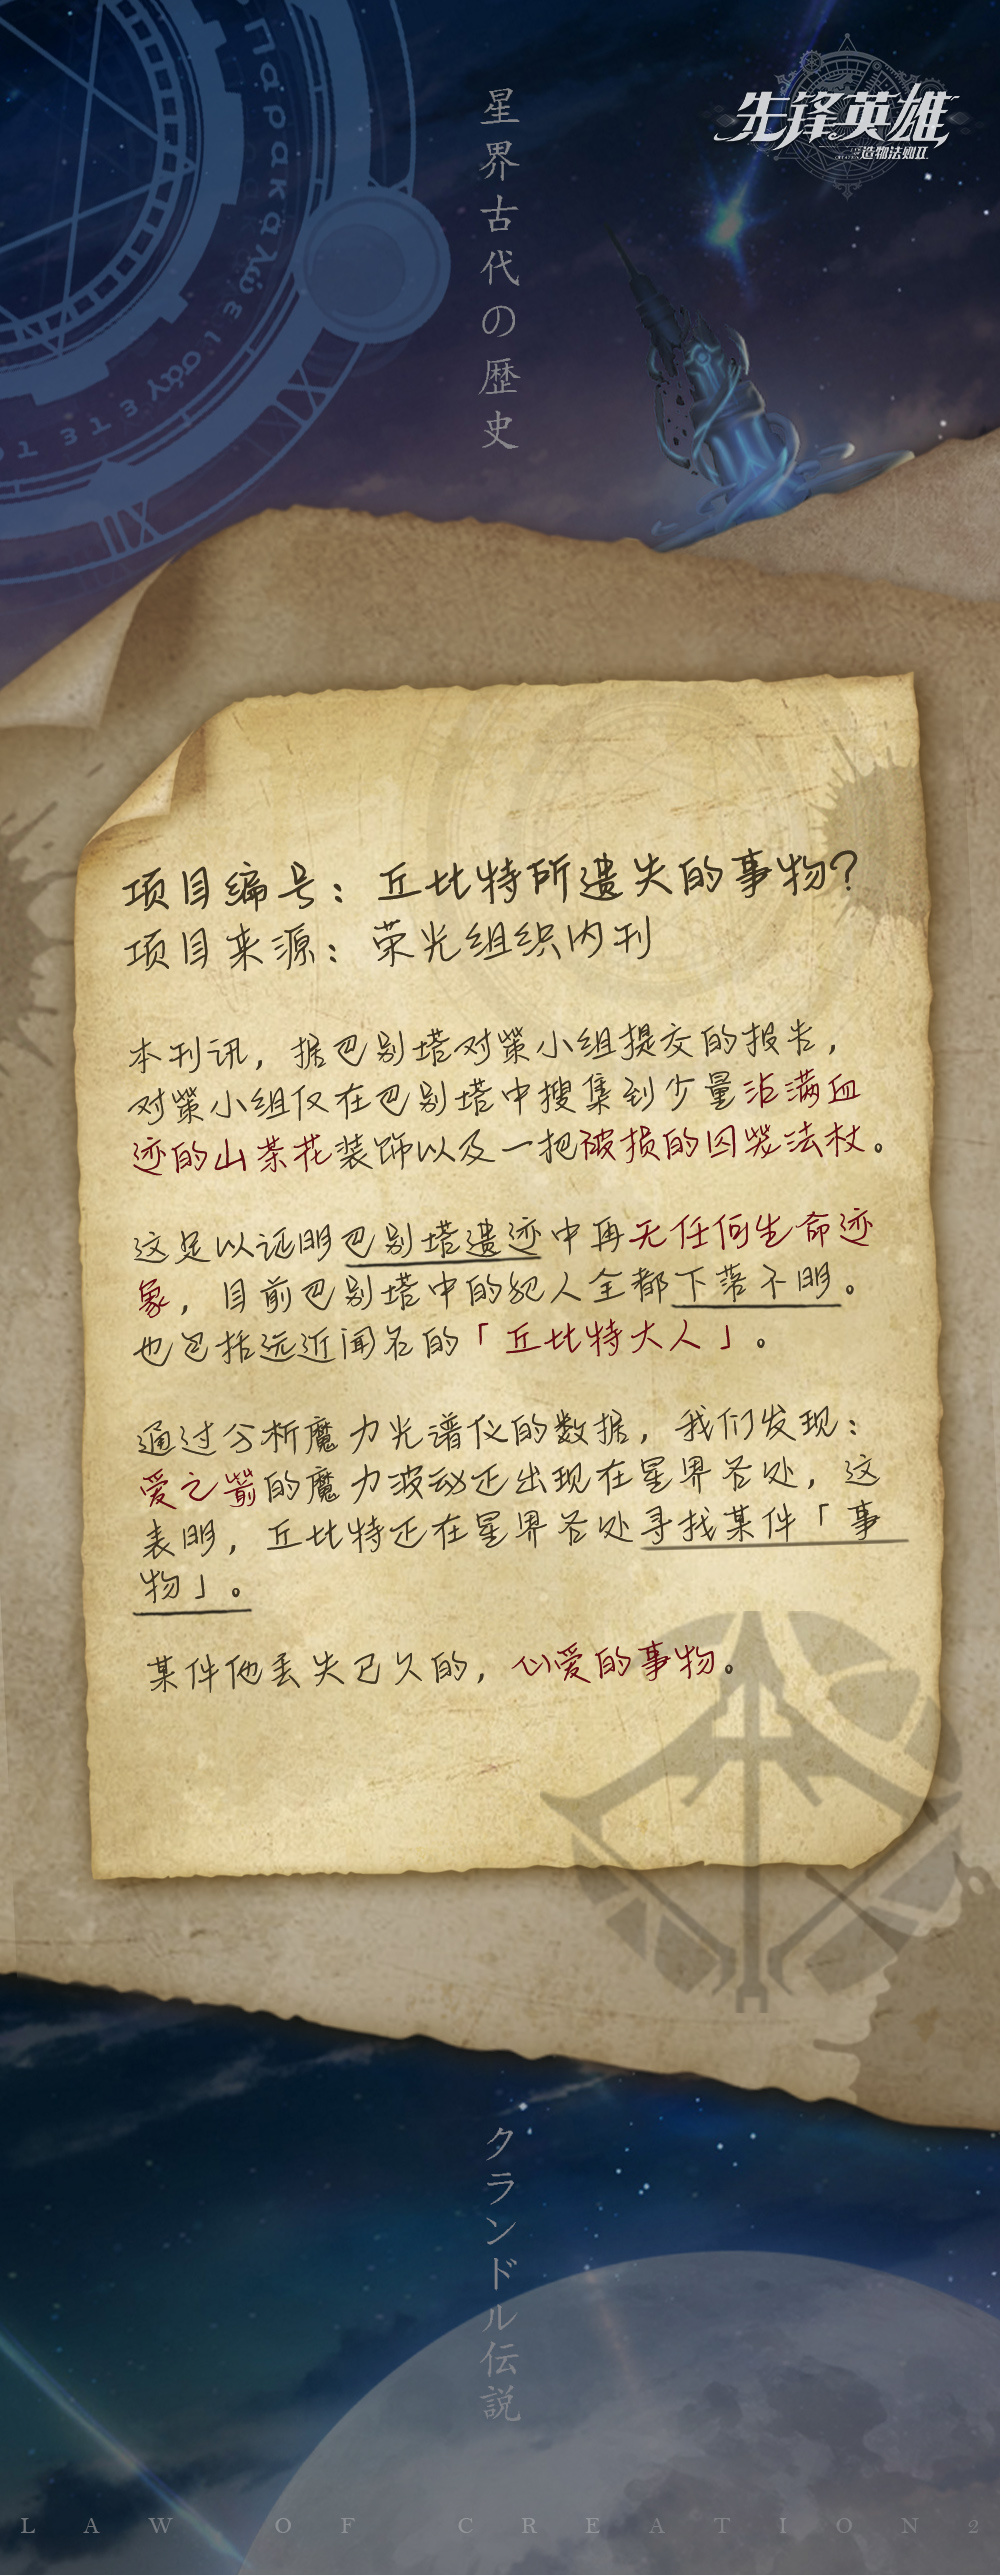 星界古代の歴史
先锋英雄
造物法则II
项目编号：丘比特所遗失的事物？
项目来源：荣光组织内刊
本刊讯，据巴别塔对策小组提交的报告，
对策小组仅在巴别塔中搜集到少量沾满血
迹的山茶花装饰以及一把破损的囚笼法杖。
这足以证明巴别塔遗迹中再无任何生命迹
象，目前巴别塔中的犯人全都下落不明。
也包括远近闻名的「丘比特大人」。
通过分析魔力光谱仪的数据，我们发现：
爱之箭的魔力波动正出现在星界各处，这
表明，丘比特正在星界各处寻找某件「事
物」。
某件他丢失已久的，心爱的事物。
クランドル伝説
LAW OF CREATION2